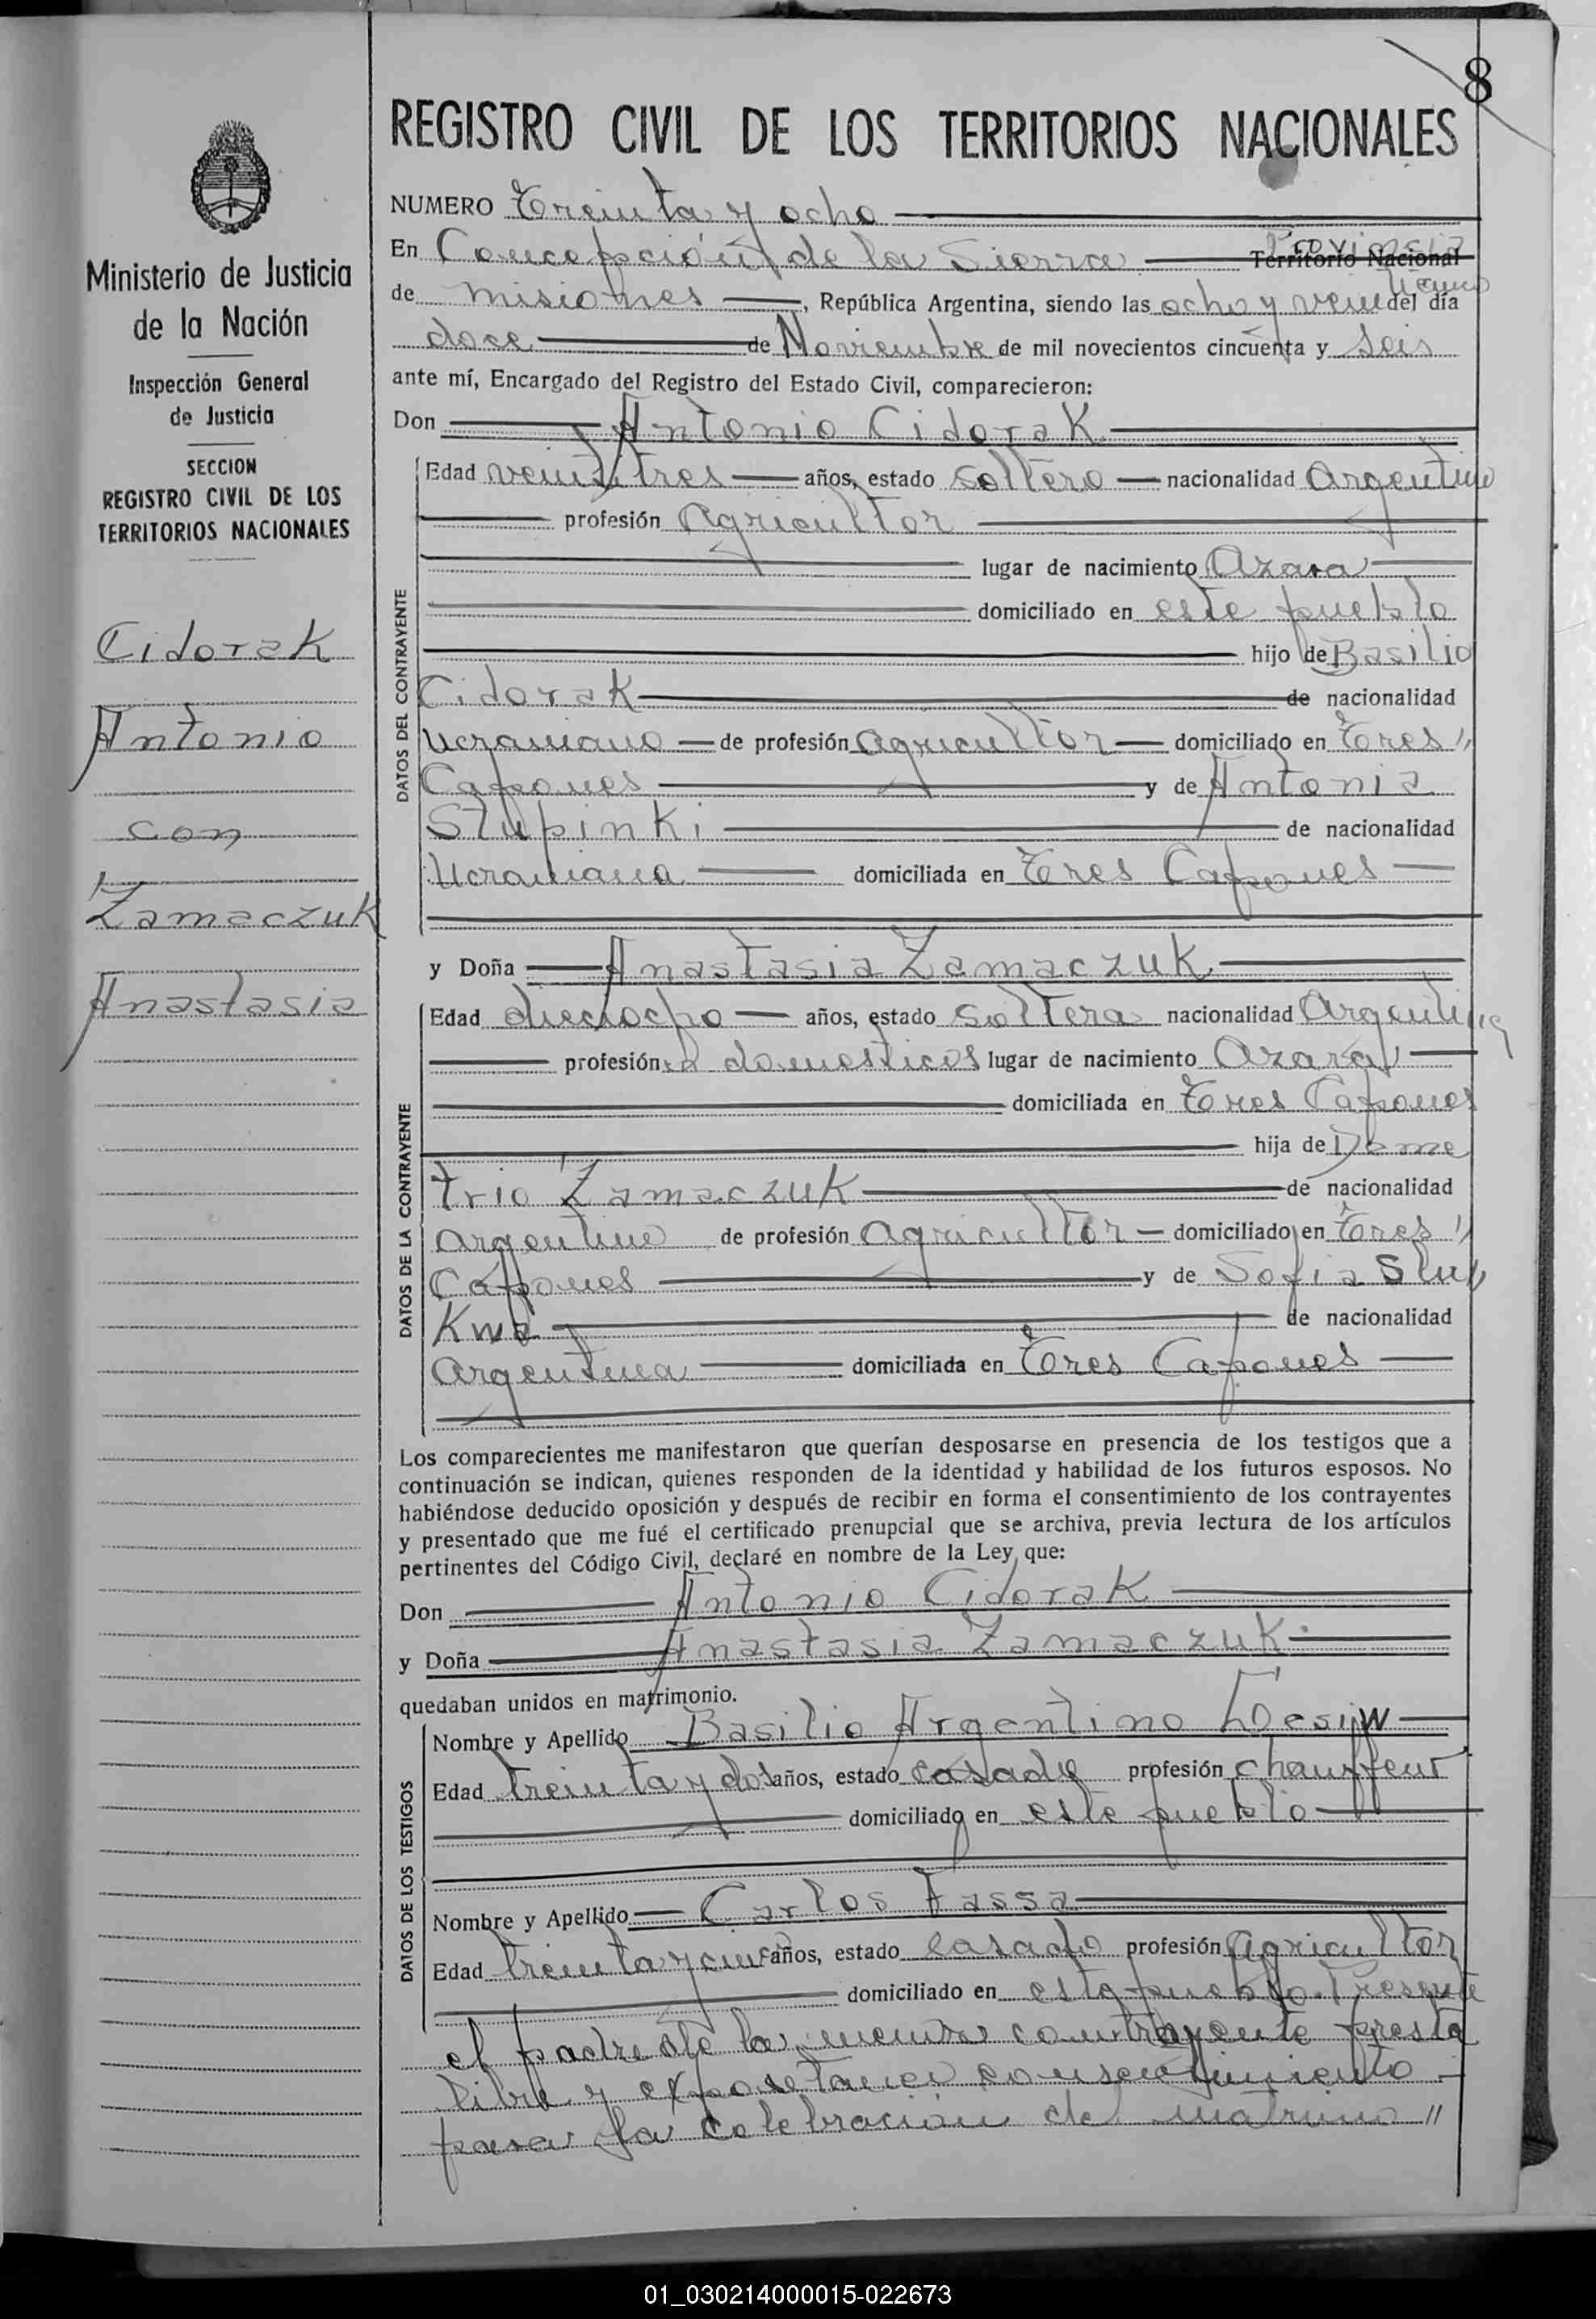 8
REGISTRO CIVIL DE LOS TERRITORIOS NACIONALES
Ministerio de Justicia
de la Nación
Inspección General
de Justicia
SECCION
REGISTRO CIVIL DE LOS
TERRITORIOS NACIONALES
Cidorak
Antonio
con
Zamaczuk
Anastasia
NUMERO Treinta y ocho
Provincia
En Concepción de la Sierra Territorio Nacional
de Misiones, República Argentina, siendo las ocho y vein del día
doce de Noviembre de mil novecientos cincuenta y seis
ante mí, Encargado del Registro del Estado Civil, comparecieron:
Don Antonio Cidorak
DATOS DEL CONTRAYENTE
Edad veintitres años, estado soltero nacionalidad Argentino
profesión Agricultor
lugar de nacimiento Azara
domiciliado en este pueblo
hijo de Basilio
Cidorak de nacionalidad
Ucraniano de profesión Agricultor domiciliado en Tres "
Capones y de Antonia
Stupinki de nacionalidad
Ucraniana domiciliada en Tres Capones
y Doña Anastasia Zamaczuk
DATOS DE LA CONTRAYENTE
Edad dieciocho años, estado soltera nacionalidad Argentina
profesión domesticos lugar de nacimiento Azara
domiciliada en Tres Capones
hija de Deme
trio Zamaczuk de nacionalidad
Argentino de profesión Agricultor domiciliado en Tres "
Capones y de Sofia
de nacionalidad
Argentina domiciliada en Tres Capones
Los comparecientes me manifestaron que querían desposarse en presencia de los testigos que a
continuación se indican, quienes responden de la identidad y habilidad de los futuros esposos. No
habiéndose deducido oposición y después de recibir en forma el consentimiento de los contrayentes
y presentado que me fué el certificado prenupcial que se archiva, previa lectura de los artículos
pertinentes del Código Civil, declaré en nombre de la Ley que:
Don Antonio Cidorak
y Doña Anastasia Zamaczuk
quedaban unidos en matrimonio.
DATOS DE LOS TESTIGOS
Nombre y Apellido Basilio Argentino
Edad treinta y dos años, estado casado profesión chauffeur
domiciliado en este pueblo
Nombre y Apellido Carlos Fassa
Edad treinta y cinc años, estado casado profesión Agricultor
domiciliado en este pueblo. Presente
el padre de la menor contrayente presta
libre y expontaneo consentimiento
para la celebración de matrimo "
01_030214000015-022673